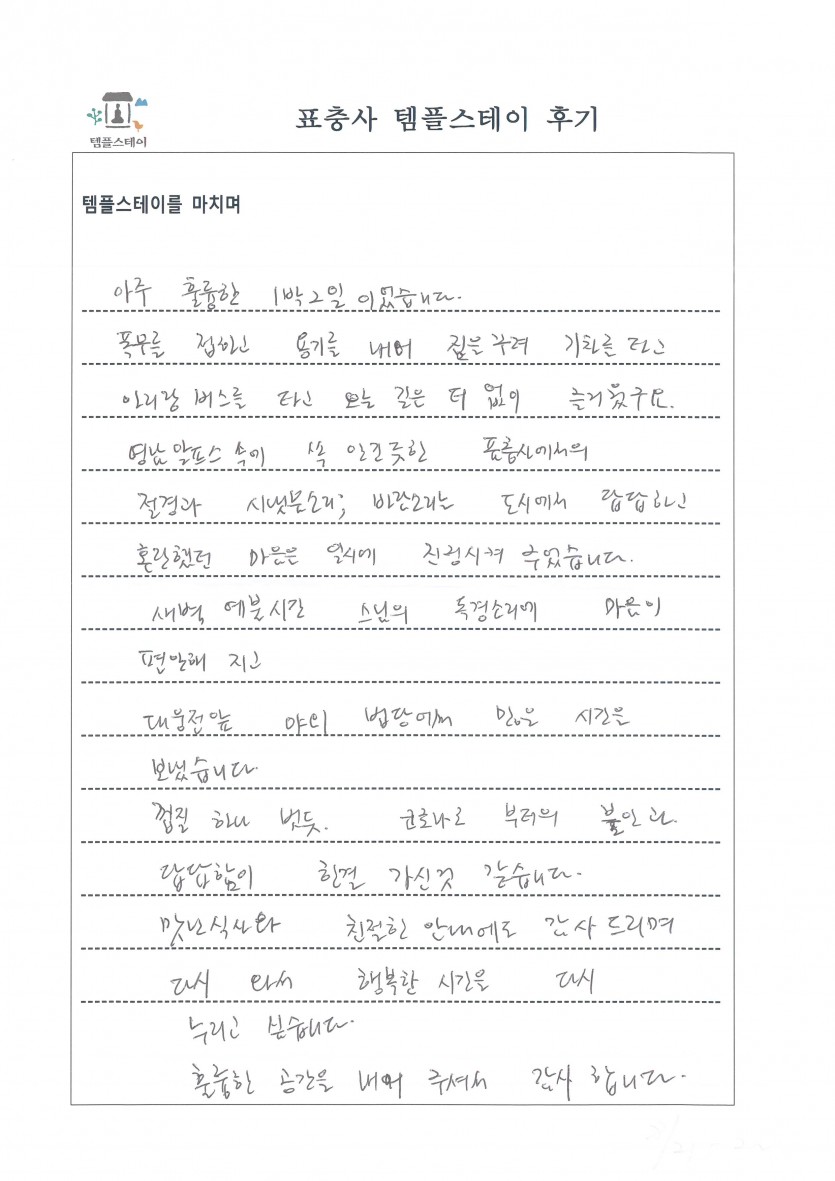 템플스테이
표충사 템플스테이 후기
템플스테이를 마치며
아주 훌륭한 1박2일 이었습니다.
폭무를 접하고 용기를 내어 짐을 꾸려 기차를 타고
아리랑 버스를 타고 오늘 길은 더 없이 즐거웠구요.
영남 알프스 속에 쏙 안긴듯한 표충사에서의
절경과 시냇물소리, 바람소리는 도시에서 답답하고
혼란했던 마음은 일시에 진정시켜 주었습니다.
새벽 예불시간 스님의 독경소리에 마음이
편안해 지고
대웅전앞 야외 법당에서 믿음을 시간을
보냈습니다.
껍질 하나 벗듯. 코로나로 부터의 불안과.
답답함이 한결 가신것 같습니다.
맛난식사와 친절한 안내에도 감사 드리며
다시 와서 행복한 시간을 다시
누리고 싶습니다.
훌륭한 공간을 내어 주셔서 감사 합니다.